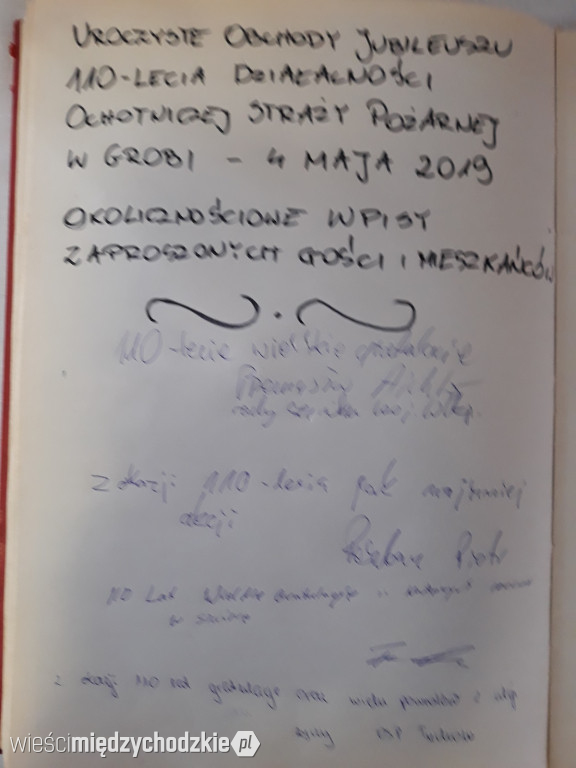 UROCZYSTE OBCHODY JUBILEUSZU
110-LECIA DZIAŁALNOŚCI
OCHOTNICZEJ STRAŻY POŻARNEJ
W GROBI - 4 MAJA 2019
OKOLICZNOŚCIOWE WPISY
ZAPROSZONYCH GOŚCI I MIESZKAŃCÓW
110-lecie wielkie gratulacje
Z okazji 110-lecia jak najmniej
akcji
Piotr
110 Lat Wielkie Gratulacje
w służbie
Z okazji 110 lat gratulacje oraz wielu
życzy OSP
wieścimiędzychodzkie.pl